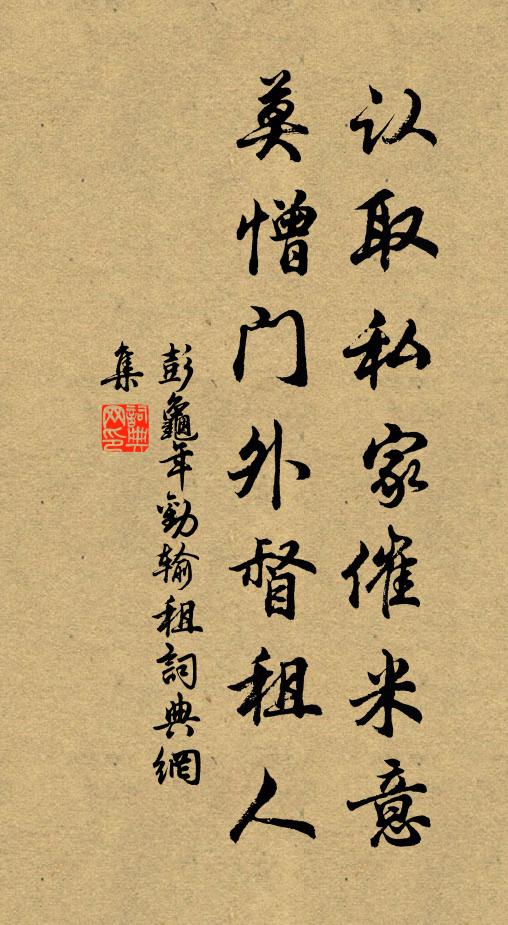 认取私家催米意
莫憎门外督租人
彭龜年勸输租詞典網
集
詞典网印